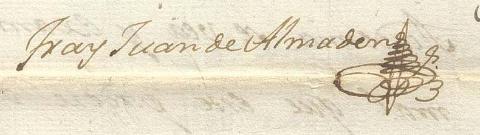 Fray Juan de Almaden